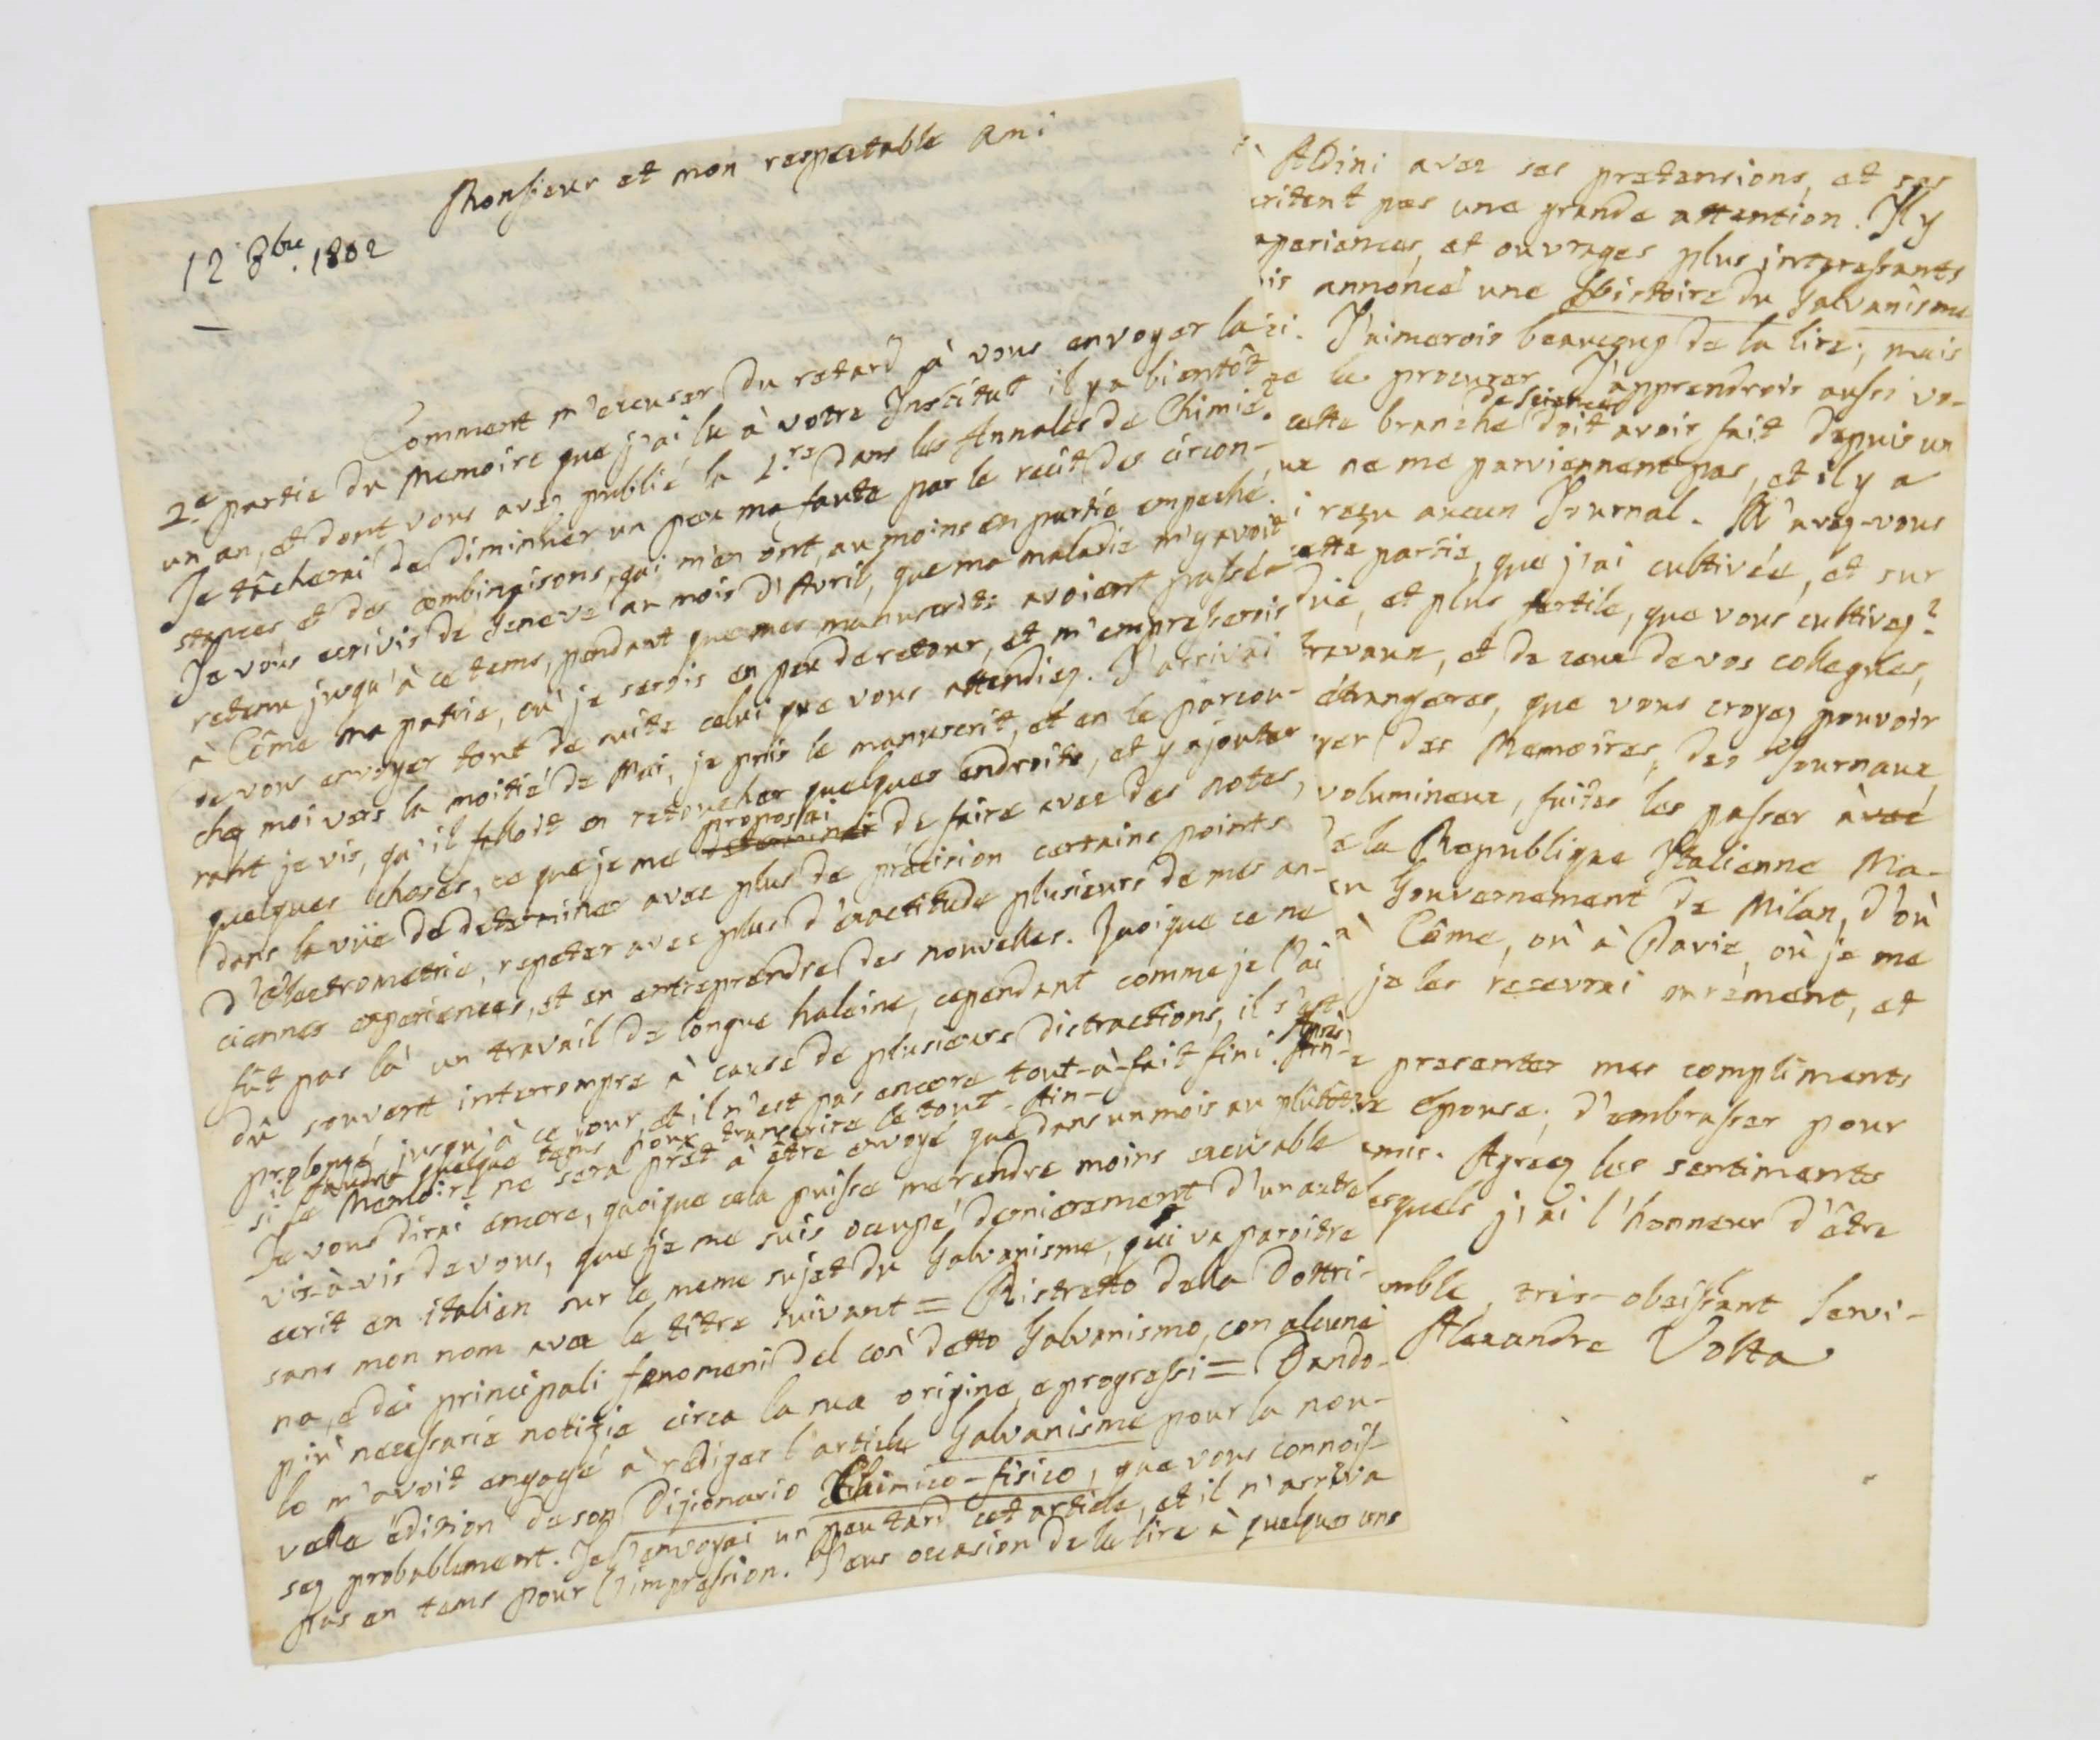 Monsieur et mon respectable Ami
12 8bre. 1802
Comment m'excuser du retard à vous envoyer la
2.e partie du Memoire que j'ai lu à votre Institut il y a bientôt
un an, et dont vous avez publié la 1.re dans les Annales de Chimie.
Je tâcherai de diminuer un peu ma faute par le recit des circon-
stances et des combinaisons, qui m'en ont, au moins en partie empeché.
Je vous ecrivis de Geneve au mois d'Avril, que ma maladie m'y avoit
retenu jusqu'à ce tems, pendant que mes manuscrits avoient passé
à Côme ma patrie, où je serois en peu de retour, et m'empresserois
de vous envoyer tout de suite celui que vous attendiez. J'arrivai
chez moi vers la moitié de Mai, je pris le manuscrit, et en le parcou-
rant je vis, qu'il falloit en retoucher quelques endroits, et y ajouter
quelques choses, ce que je me proposai de faire avec des notes,
dans la vüe de determiner avec plus de précision certains points
d'Electrometrie, repeter avec plus d'exactitude plusieurs de mes an-
ciennes experiences, et en entreprendre des nouvelles. Quoique ce ne
fût pas là un travail de longue haleine, cependant comme je l'ai
dû souvent interrompre à cause de plusieurs distractions, il s'est
prolongé jusqu'à ce jour, et il n'est pas encore tout-à-fait fini. Après
il faudra quelque tems pour transcrire le tout. Ain-
si le Memoire ne sera prêt à être envoyé que dans un mois au plûtôt.
Je vous dirai encore, quoique cela puisse me rendre moins excusable
vis-à-vis de vous, que je me suis occupé dernierement d'un autre
ecrit en italien sur le meme sujet du Galvanisme, qui va paroitre
sans mon nom avec le titre suivant = Ristretto della Dottri-
na, e dei principali fenomeni del così detto Galvanismo, con alcune
più necessarie notizie circa la sua origine, e progressi = Dando-
lo m'avoit engagé à rediger l'article Galvanisme pour la nou-
velle edition de son Dizionario Chimico-fisico, que vous connois-
sez probablement. Je l'envoyai un peu tard cet article, et il n'arriva
pas en tems pour l'impression. J'eus occasion de le lire à quelques uns
Aldini avec ses pretensions, et ses
eritent pas une grande attention. Il y
xperiences, et ouvrages plus interessants
is annoncé une Histoire du Galvanisme
J'aimerois beaucoup de la lire; mais
le procurer. J'apprendrois aussi vo-
cette branche de Sciences doit avoir fait depuis un
ux ne me parviennent pas, et il y a
i reçu aucun Journal. N'avez-vous
cette partie, que j'ai cultivée, et sur
due, et plus fertile, que vous cultivez?
travaux, et de ceux de vos collegues,
étrangeres, que vous croyez pouvoir
yer des Memoires, des Journaux,
volumineux, faites les passer
e la Republique Italienne Ma-
au Gouvernement de Milan, d'où
à Côme, où à Pavie, où je me
je les recevrai surement, et
e presenter mes compliments
re épouse; d'embrasser pour
amis. Agréez les sentiments
esquels j'ai l'honneur d'être
umble, tres-obeissant Servi-
Alexandre Volta